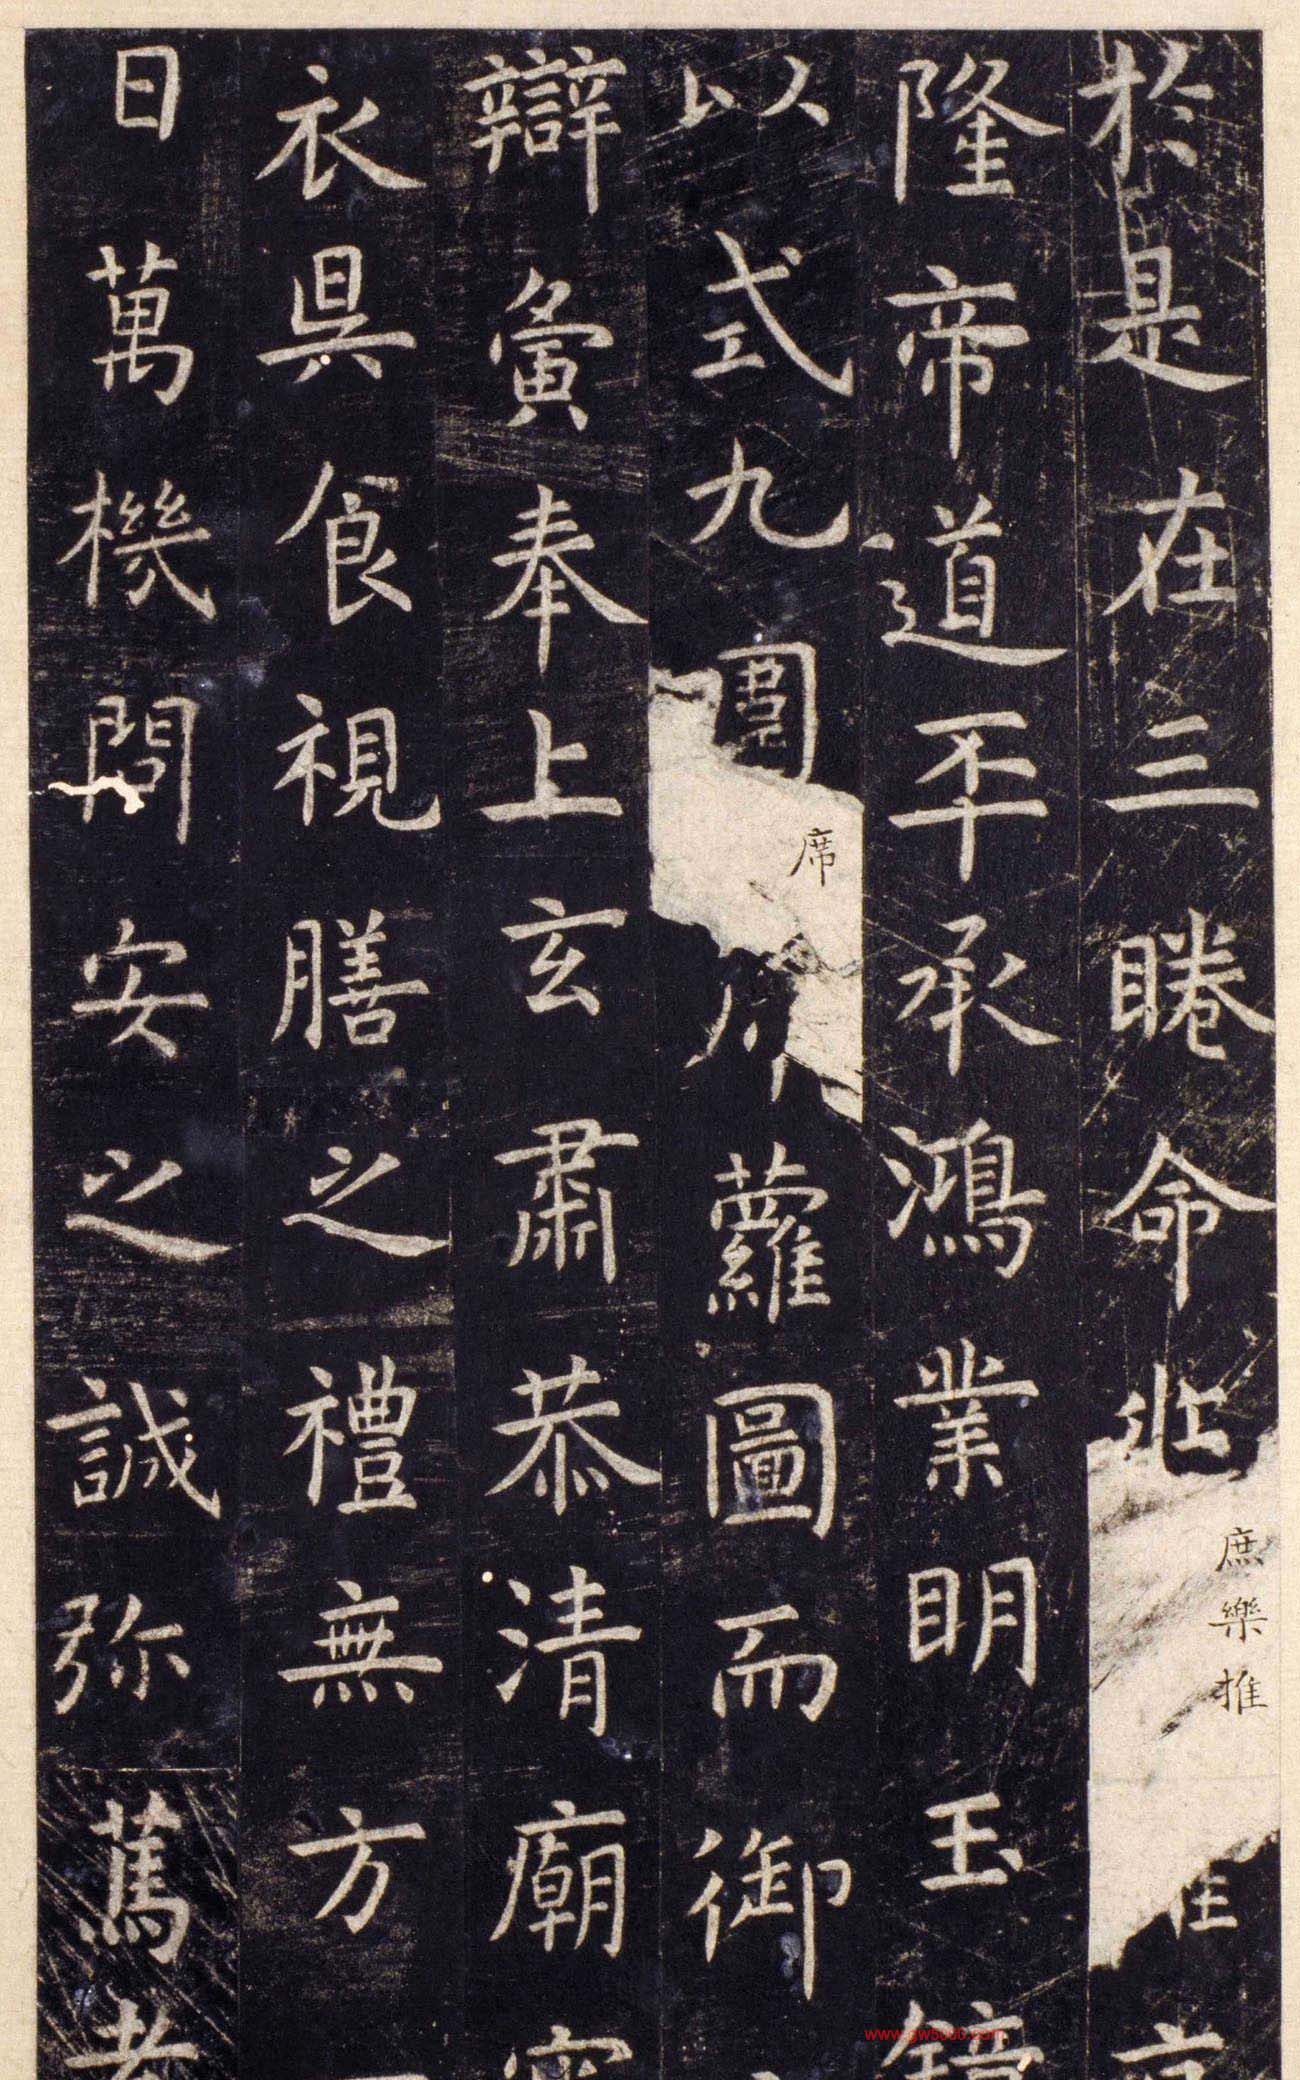 於是在三睠命兆庶樂推
隆帝道丕承鴻業明玉鏡
以式九圍席蘿圖而御
辯寅奉上玄肅恭清廟宵
衣旰食視膳之禮無方
日萬機問安之誠弥篤孝
www.gw5000.com